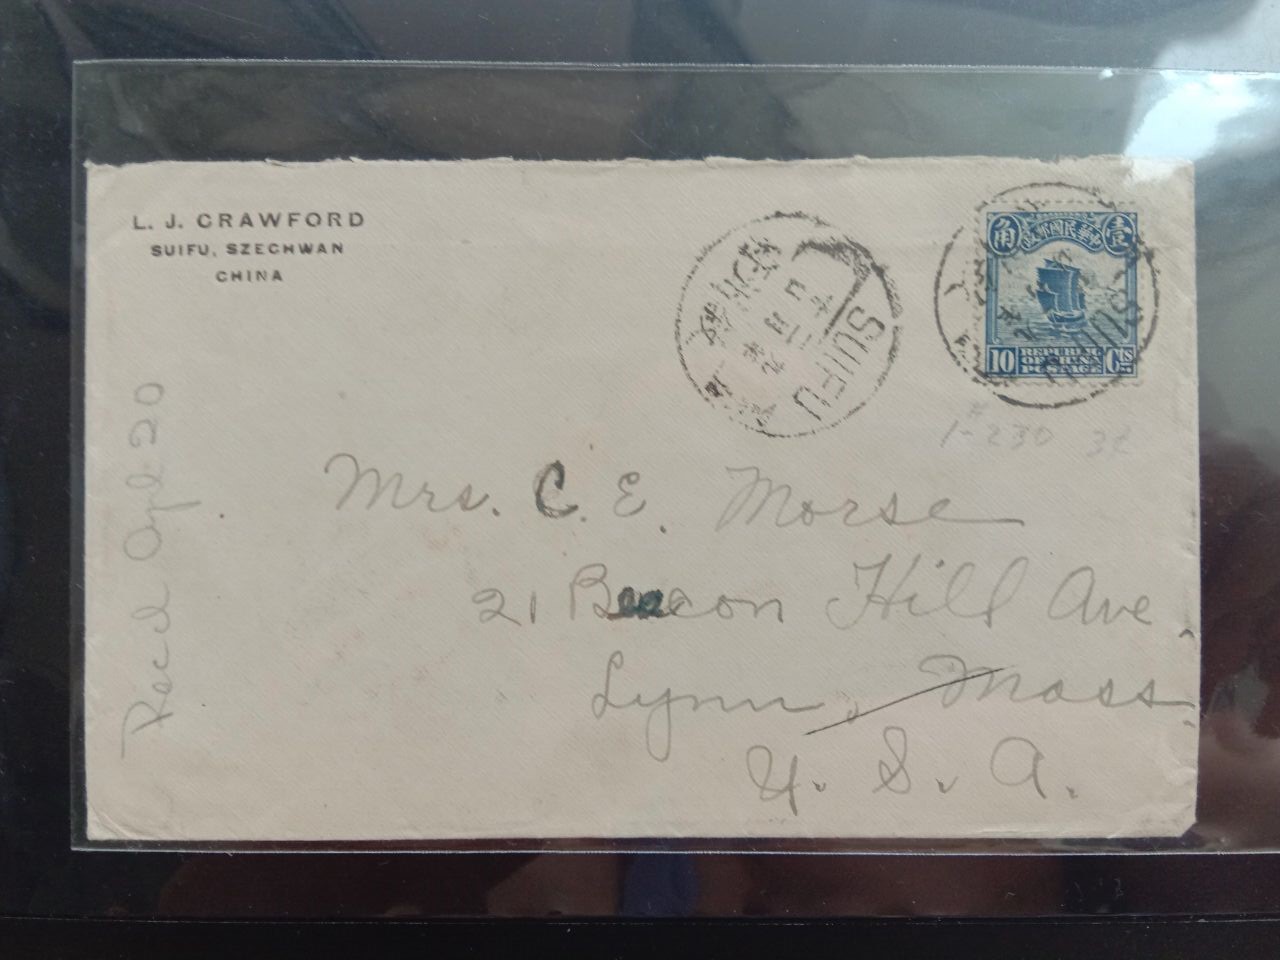 L. J. CRAWFORD
SUIFU, SZECHWAN
CHINA
SUIFU
角 中華民國郵政 壹
10 REPUBLIC OF CHINA POSTAGE Cts
SUIFU
1-230 3¢
Mrs. C. E. Morse
21 Beacon Hill Ave
Lynn, Mass.
U. S. A.
Rec'd Apl 20